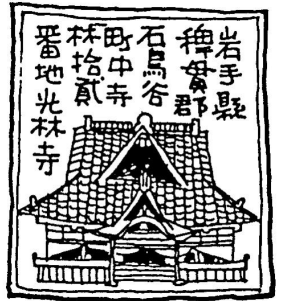 岩手縣
稗貫郡
石鳥谷
町中寺
林拾貳
番地光林寺